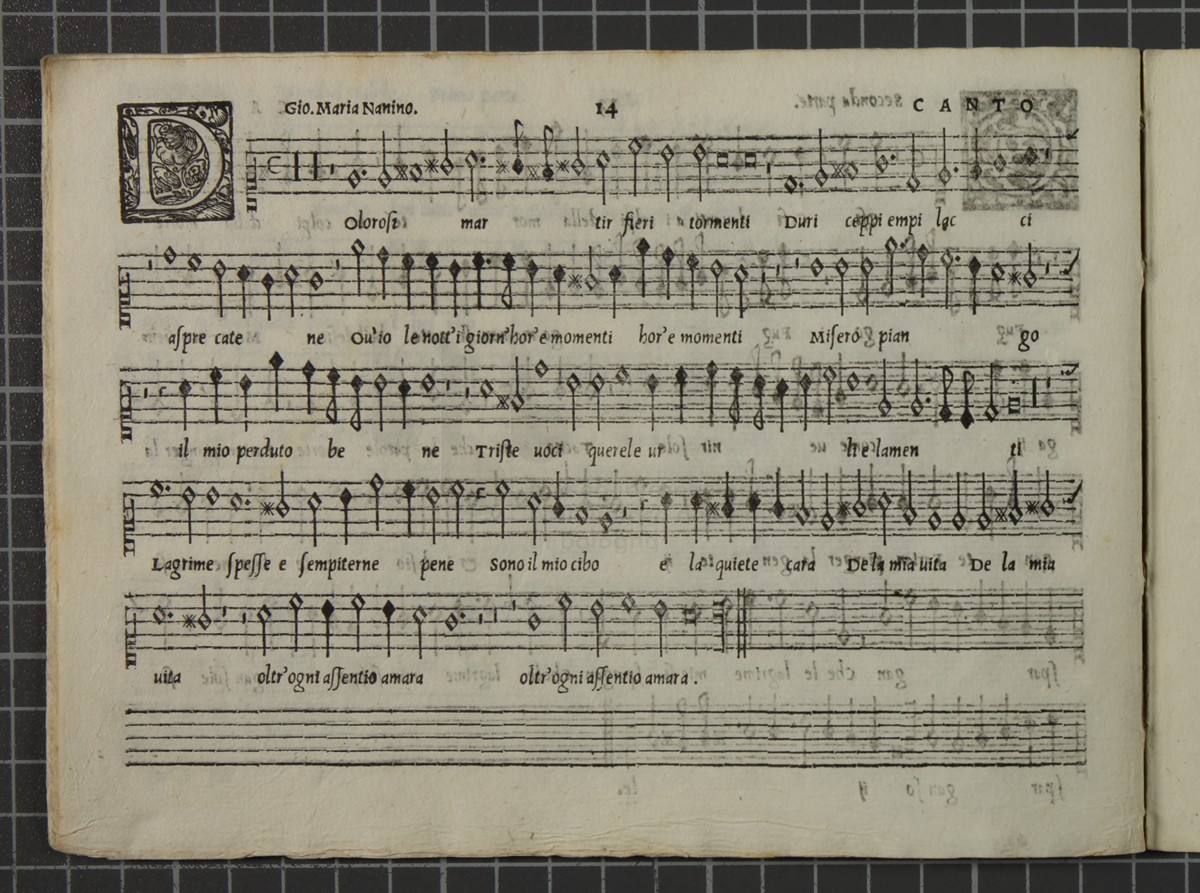 Gio. Maria Nanino. 14 CANTO
DOlorosi mar tir fieri tormenti Duri ceppi empi lac ci
aſpre cate ne Ou'io le nott'i giorn'hor'e momenti hor'e momenti Miſero pian go
il mio perduto be ne Triſte uoci querele ur li e lamen ti
Lagrime ſpeſſe e ſempiterne pene Sono il mio cibo e la quiete cara De la mia uita De la mia
uita oltr'ogni aſſentio amara oltr'ogni aſſentio amara .